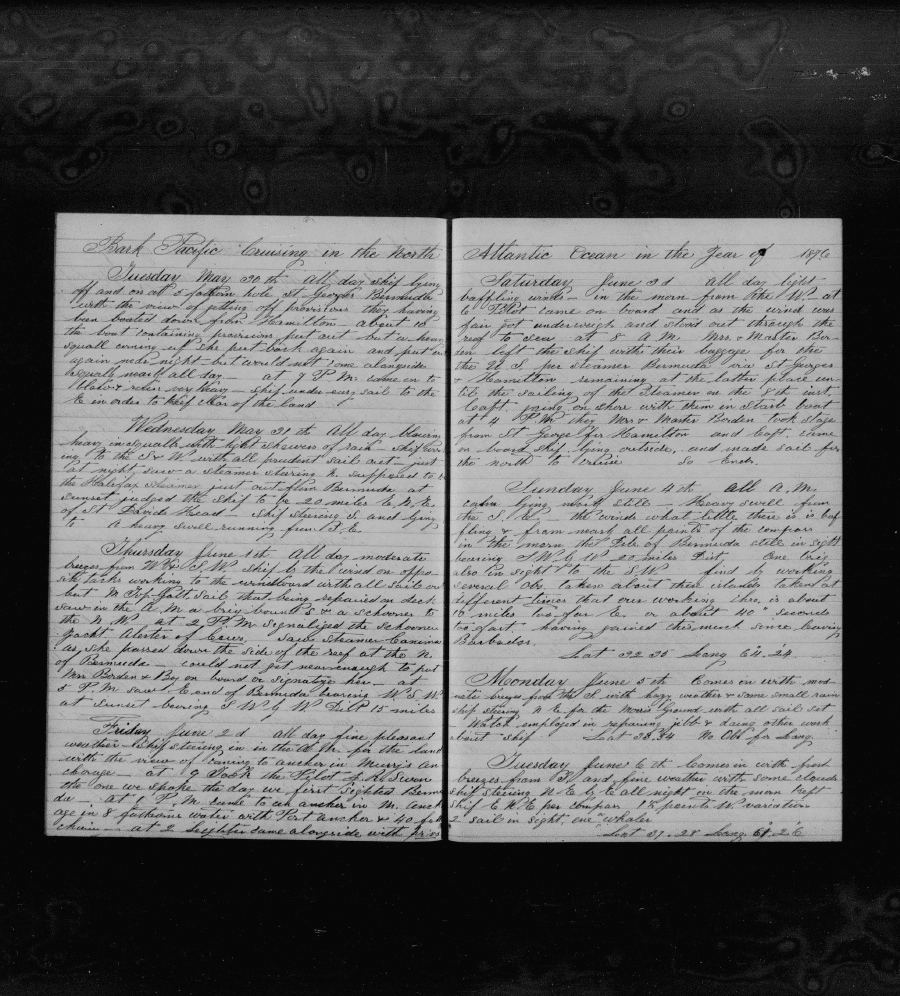 Bark Pacific Cruising in the North
Tuesday May 30th All day ship lying
off and on at 5 fathom hole St Georges Bermuda
with the view of getting off provisions they having
been boated down from Hamilton about 10
the boat containing provisions put out but a heavy
squall coming up she put back again and put out
again near night but would not come alongside
squally weath all day at 7 P.M. came on to
blow & rain very heavy ship under easy sail to the
E in order to keep clear of the land
Wednesday May 31th All day blowing
heavy in squalls with light showers of rain ship
to the S & W with all prudent sail out just
at night saw a steamer steering N. supposed to be
the Halifax steamer just out from Bermuda at
sunset judged the ship to be 20 miles E.N.E.
of St Davids Head Ship steering S and lying
to A heavy swell running from S.E.
Thursday June 1st All day moderate
breezes from W to S.W. Ship by the wind on oppo-
site tacks working to the windward with all sail out
but M Top Gallt Sail that being repaired on deck
saw in the A.M a brig bound S & a schooner to
the N.W. at 2 P.M. signalized the schooner
yacht Alerter of Cowes, saw Steamer Canima
as she passed down the side of the reef at the N.
of Bermuda could not get near enough to put
Mrs Borden & Boy on board or signalize her at
5 P.M. saw E. end of Bermuda bearing W S W
at sunset bearing S W by W Dist 15 miles
Friday June 2d all day fine pleasant
weather Ship steering in in the A.M. for the land
with the view of coming to anchor in Murry's An
chorage at 9 Took the Pilot
the one we spoke the day we first sighted Bermu
da at 1 P.M. came to an anchor in M. anch
age in 8 fathoms water with Port anchor & 40 fath
chain at 2 Lighter came alongside with provis
Atlantic Ocean in the Year of 1876
Saturday June 3d all day light
baffling winds in the morn from the W. at
6 Pilot came on board and as the wind was
fair got underweigh and stood out through the
reef to sea at 8 A.M. Mrs & Master Bor-
den left the ship with their baggage for the
the U.S. per Steamer Bermuda via St Georges
& Hamilton remaining at the latter place un-
til the sailing of the Steamer on the 8th inst.
Capt. going on shore with them in Starb boat
at 4 P.M. they Mrs & Master Borden took stage
from St George for Hamilton and Capt. came
on board ship lying outside, and made sail for
the north to cruise So Ends.
Sunday June 4th All A.M.
calm lying most still Heavy swell from
the S.E. the winds what little there is is baf
fling & from nearly all points of the compass
in the morn the Isle of Bermuda still in sight
bearing S W by W 20 miles Dist One brig
also in sight to the S.W. find by working
several Obs taken about these islands taken at
different times that our working chro. is about
10 miles too far E. or about 40" seconds
too fast. having gained this much since leaving
Barbados.
Lat 32 35 Long 64.24
Monday June 5th Comes in with mod-
erate breezes from the S. with hazy weather & some small rain
ship steering N.E. for the Western Ground with all sail set
Watch employed in repairing jibb & doing other work
about ship Lat 33.34 No Obs for Long.
Tuesday June 6th Comes in with fresh
breezes from S. and fine weather with some clouds
ship steering N E by E all night in the morn kept
ship E N E per compass 1¼ points W variation
2 sail in sight, one whaler